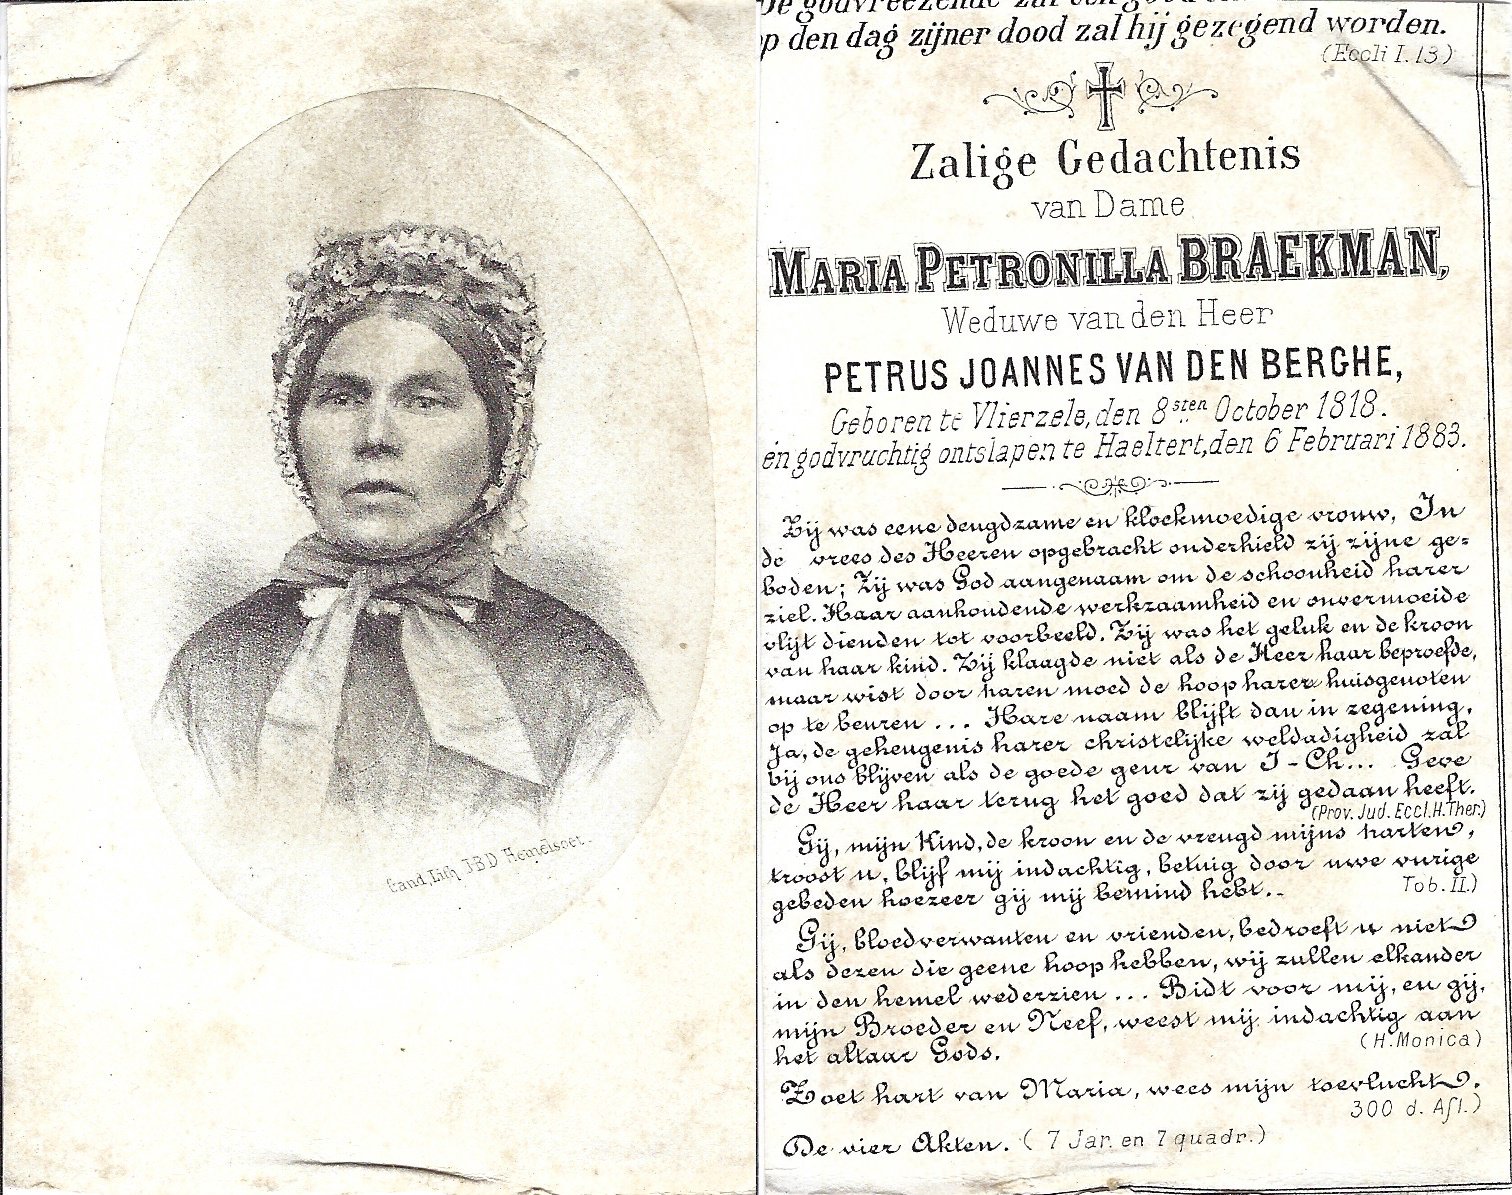 Gand, Lith. J.B.D. Hemelsoet.
op den dag zijner dood zal hij gezegend worden.
(Eccli I. 13)
Zalige Gedachtenis
van Dame
MARIA PETRONILLA BRAEKMAN,
Weduwe van den Heer
PETRUS JOANNES VAN DEN BERGHE,
Geboren te Vlierzele, den 8sten October 1818.
en godvruchtig ontslapen te Haeltert, den 6 Februari 1883.
Zij was eene deugdzame en kloekmoedige vrouw, In
de vrees des Heeren opgebracht onderhield zij zijne ge=
boden; Zij was God aangenaam om de schoonheid harer
ziel. Haar aanhoudende werkzaamheid en onvermoeide
vlijt dienden tot voorbeeld. Zij was het geluk en de kroon
van haar kind. Zij klaagde niet als de Heer haar beproefde,
maar wist door haren moed de hoop harer huisgenoten
op te beuren ... Hare naam blijft dan in zegening.
Ja, de geheugenis harer christelijke weldadigheid zal
bij ons blijven als de goede geur van J-Ch... Geve
de Heer haar terug het goed dat zij gedaan heeft.
(Prov. Jud. Eccl. H. Ther.)
Gij, mijn Kind, de kroon en de vreugd mijns harten,
troost u, blijf mij indachtig, betuig door uwe vurige
gebeden hoezeer gij mij bemind hebt..
Tob. II.)
Gij, bloedverwanten en vrienden, bedroeft u niet
als dezen die geene hoop hebben, wij zullen elkander
in den hemel wederzien ... Bidt voor mij, en gij,
mijn Broeder en Neef, weest mij indachtig aan
het altaar Gods.
(H. Monica)
Zoet hart van Maria, wees mijn toevlucht.
300 d. Afl.)
De vier Akten. (7 Jar. en 7 quadr.)